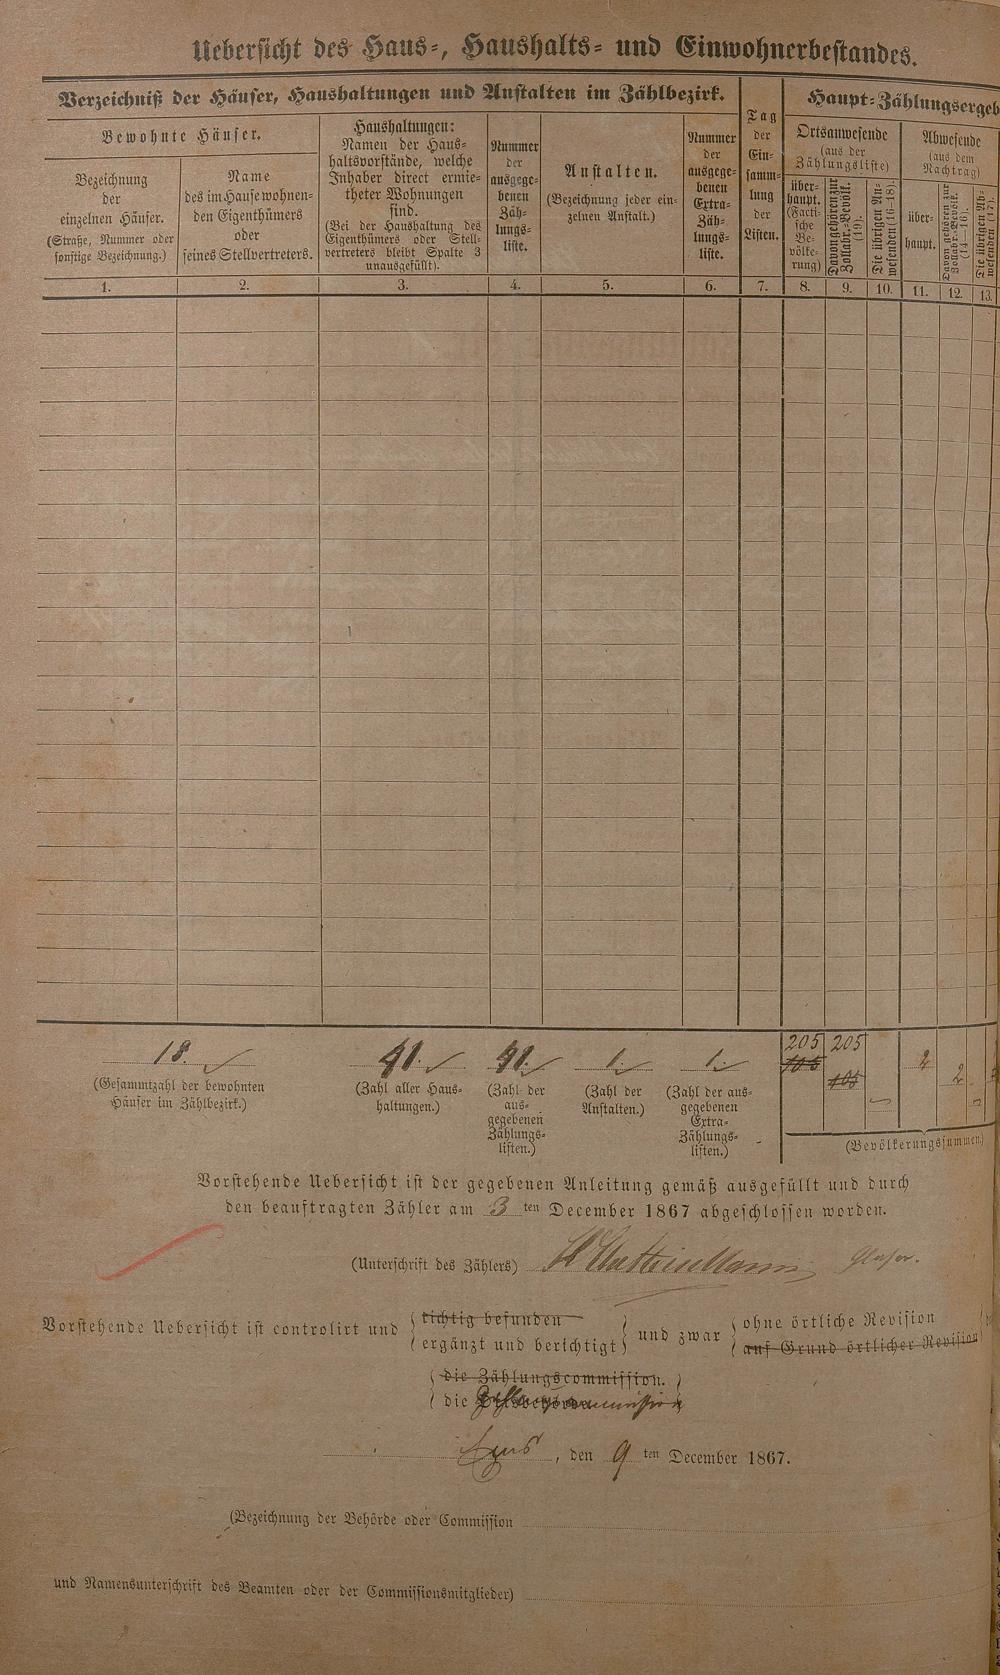 Uebersicht des Haus-, Haushalts- und Einwohnerbestandes.
Verzeichniß der Häuser, Haushaltungen und Anstalten im Zählbezirk.
Bewohnte Häuser.
Bezeichnung
der
einzelnen Häuser.
(Straße, Nummer oder
sonstige Bezeichnung.)
Name
des im Hause wohnen-
den Eigenthümers
oder
seines Stellvertreters.
Haushaltungen:
Namen der Haus-
haltsvorstände, welche
Inhaber direct ermie-
theter Wohnungen
sind.
(Bei der Haushaltung des
Eigenthümers oder Stell-
vertreters bleibt Spalte 3
unausgefüllt).
Nummer
der
ausgege-
benen
Zäh-
lungs-
liste.
Anstalten.
(Bezeichnung jeder ein-
zelnen Anstalt.)
Nummer
der
ausgege-
benen
Extra-
Zäh-
lungs-
liste.
Tag
der
Ein-
samm-
lung
der
Listen.
Haupt-Zählungsergeb
Ortsanwesende
(aus der
Zählungsliste)
über-
haupt.
(Facti-
sche
Be-
völke-
rung)
Davon gehören zur
Zollabr.-Bevölk.
(19).
Die übrigen An-
wesenden (16-18).
Abwesende
(aus dem
Nachtrag)
über-
haupt.
Davon gehören zur
Zollabr.-Bevölk.
(14-16).
Die übrigen Ab-
wesenden (17).
1. 2. 3. 4. 5. 6. 7. 8. 9. 10. 11. 12. 13.
18. 41. 41. 1. 1. 205 205
105 2
105 2
(Gesammtzahl der bewohnten
Häuser im Zählbezirk.)
(Zahl aller Haus-
haltungen.)
(Zahl der
aus-
gegebenen
Zählungs-
listen.)
(Zahl der
Anstalten.)
(Zahl der aus-
gegebenen
Extra-
Zählungs-
listen.)
(Bevölkerungssummen.)
Vorstehende Uebersicht ist der gegebenen Anleitung gemäß ausgefüllt und durch
den beauftragten Zähler am 3 ten December 1867 abgeschlossen worden.
(Unterschrift des Zählers) Glaser.
Vorstehende Uebersicht ist controlirt und
richtig befunden
ergänzt und berichtigt
und zwar
ohne örtliche Revision
auf Grund örtlicher Revision
die Zählungscommission.
die
Ems, den 9 ten December 1867.
(Bezeichnung der Behörde oder Commission
und Namensunterschrift des Beamten oder der Commissionsmitglieder)